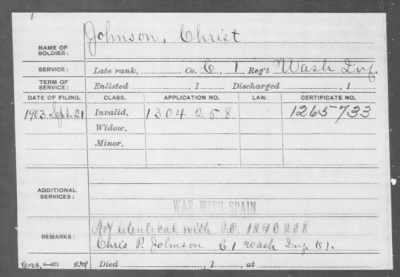 Johnson, Christ
NAME OF SOLDIER:
SERVICE: Late rank, Co. C, 1 Reg't Wash Inf.
TERM OF SERVICE: Enlisted , 1 Discharged , 1
DATE OF FILING. CLASS. APPLICATION NO. LAW. CERTIFICATE NO.
1903 Sept. 21 Invalid, 1304258 1265733
Widow,
Minor,
ADDITIONAL SERVICES:
WAR WITH SPAIN
REMARKS: Not identical with
Chris P. Johnson C 1 Wash Inf
Died , 1 , at